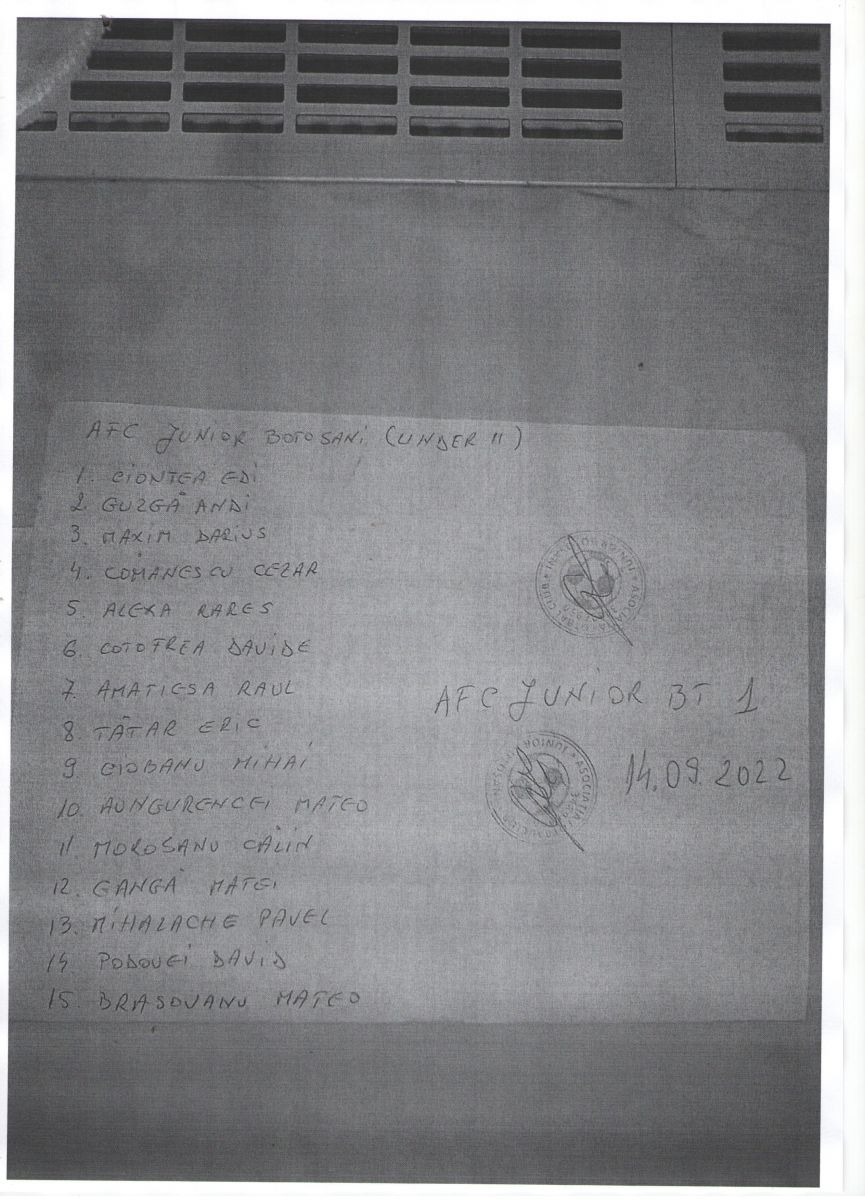 AFC JUNIOR BOTOSANI (UNDER 11)
1. CIONTEA EDI
2. GUZGĂ ANDI
3. MAXIM DARIUS
4. COMANESCU CEZAR
5. ALEXA RARES
6. COTOFREA DAVIDE
7. AMATIESA RAUL
8 TĂTAR ERIC
9 CIOBANU MIHAI
10 AUNGURENCEI MATEO
11 MOROSANU CĂLIN
12. GANGĂ MATEI
13. MIHALACHE PAVEL
14 PODOVEI DAVID
15. BRASOVANU MATEO
AFC JUNIOR BT 1
ASOCIATIA
14.09.2022